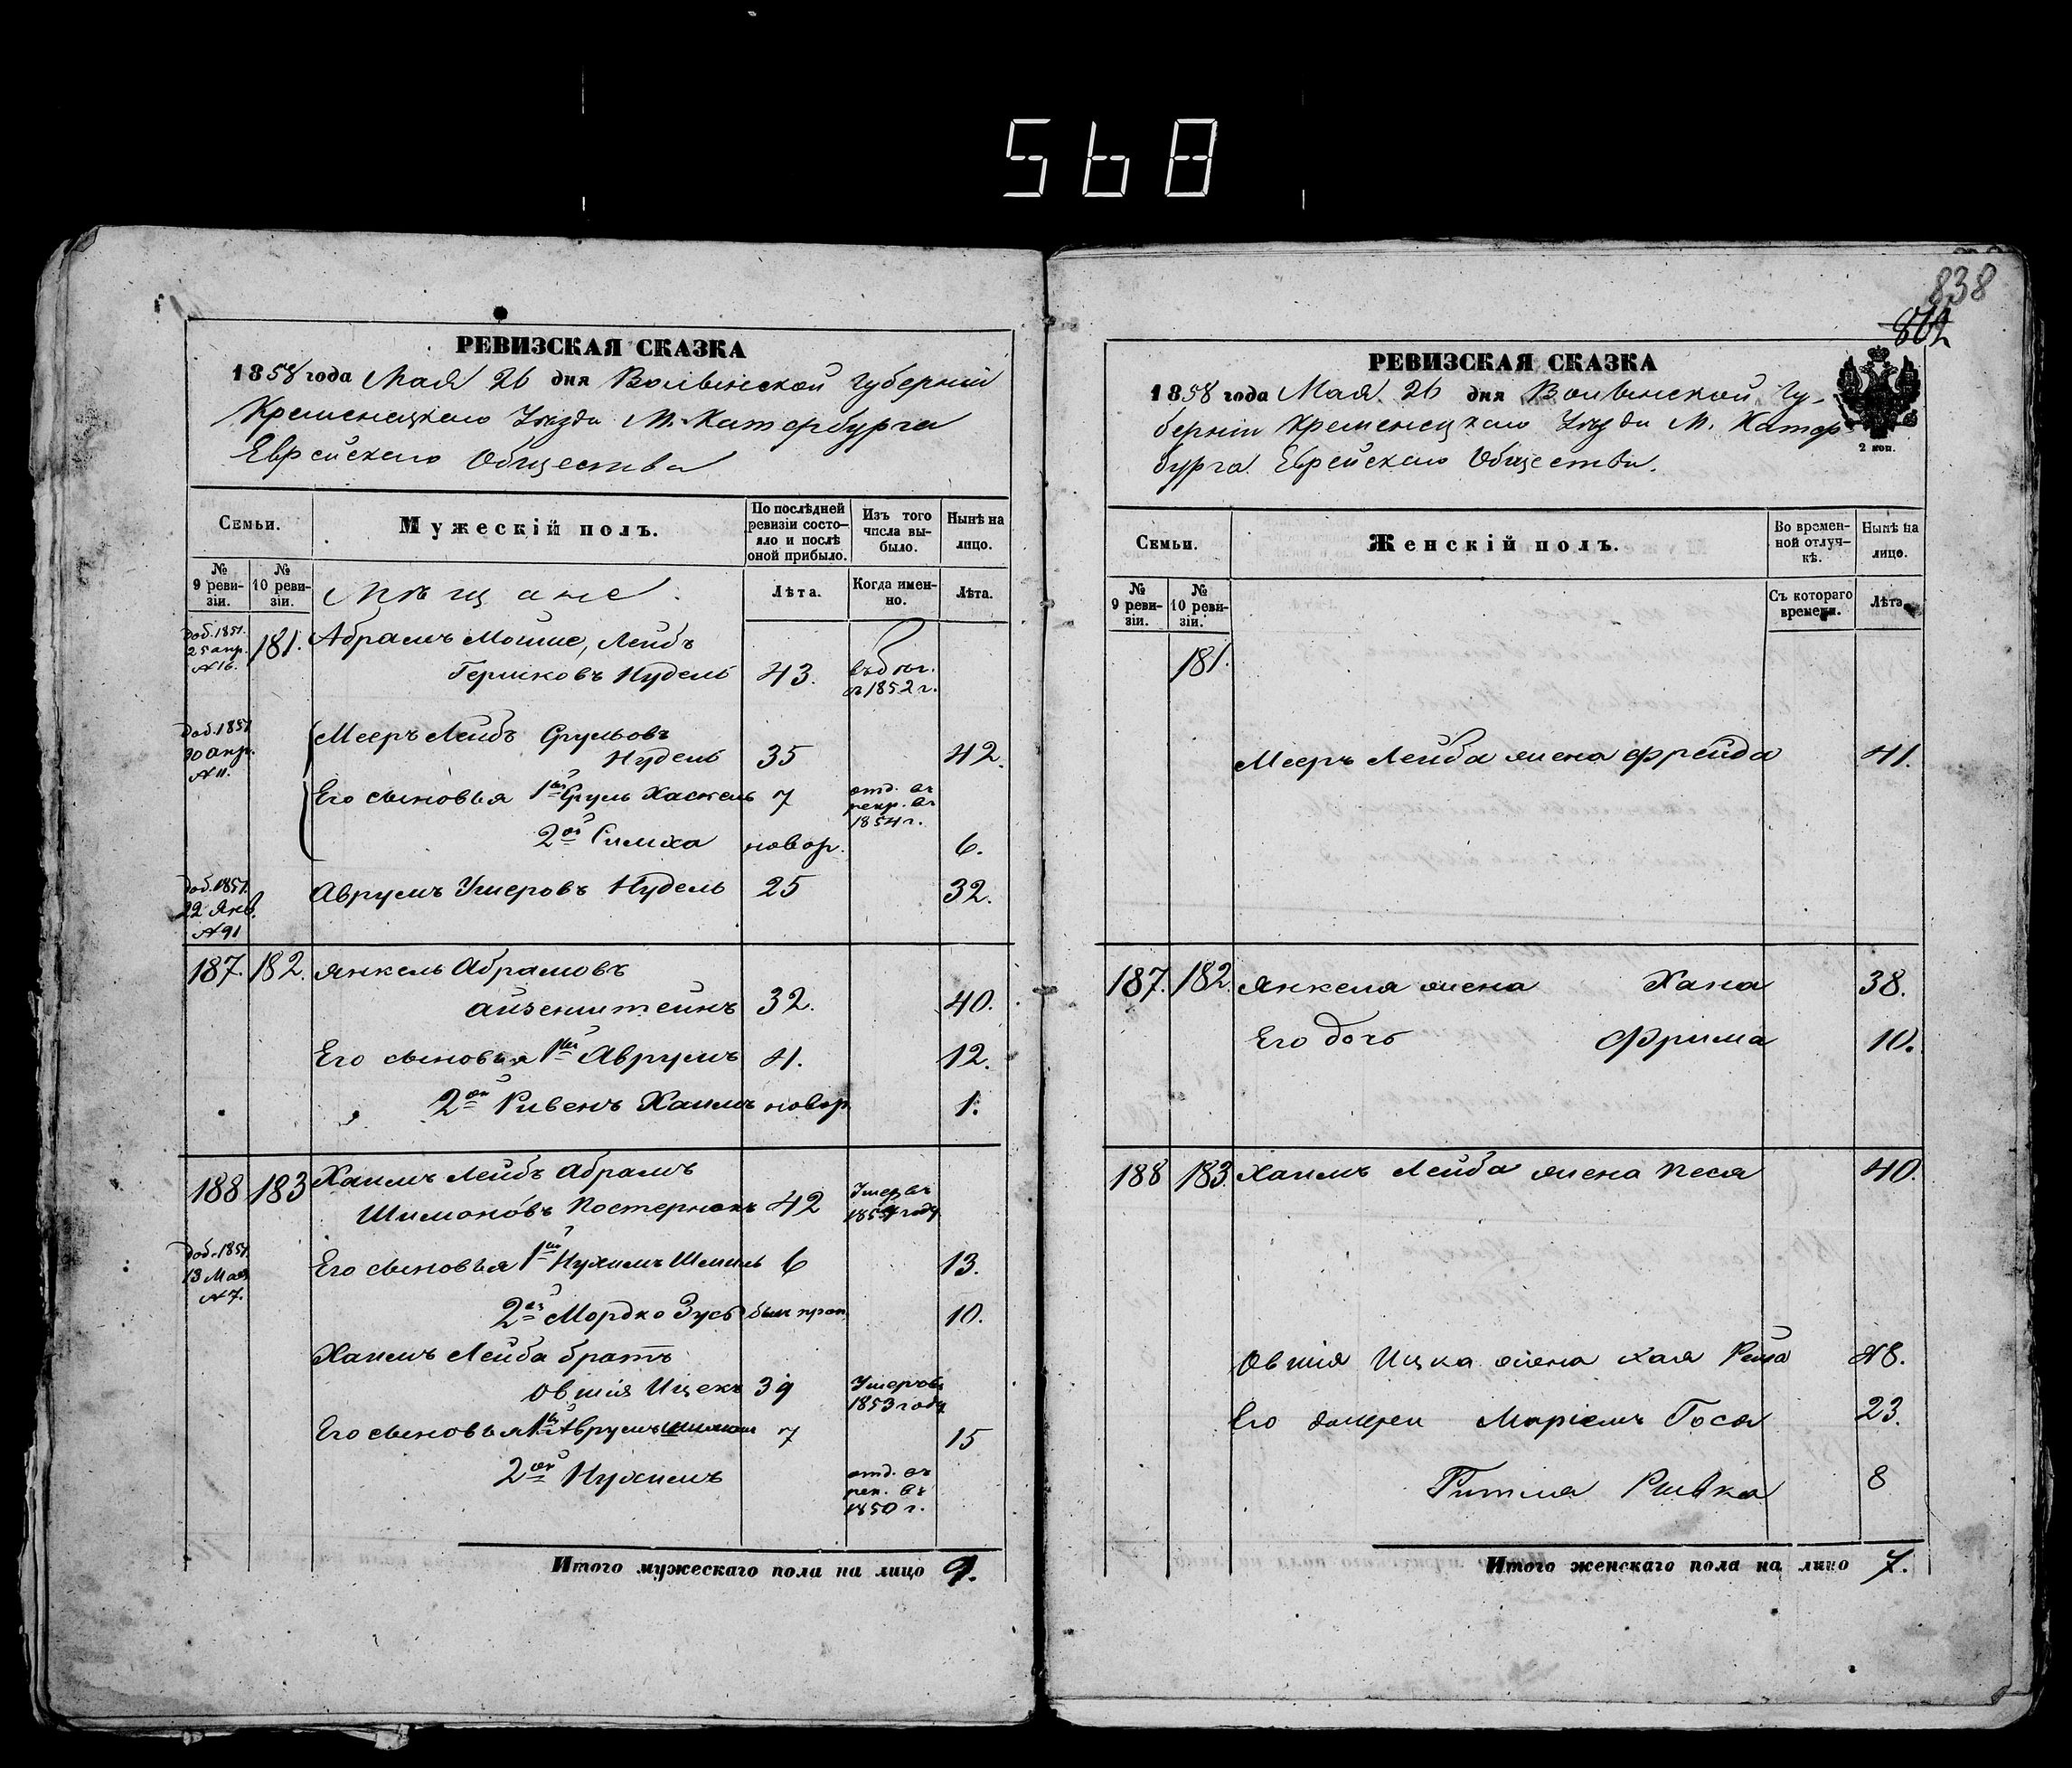 568
838
РЕВИЗСКАЯ СКАЗКА
1858 года Мая 26 дня Волынской губерніи
Кременецкаго Уѣзда М. Катербурга
Еврейскаго Общества
Семьи.
Мужескій полъ.
По послѣдней ревизіи состояло и послѣ оной прибыло.
Изъ того числа выбыло.
Нынѣ на лицо.
№ 9 ревизіи.
№ 10 ревизіи.
Мѣщане.
Лѣта.
Когда именно.
Лѣта.
доб. 1851. 25 апр. №16.
181. Абрамъ Мошие, Лейбъ
Гершковъ Нудель 43. въ бѣг. съ 1852 г.
доб. 1851 30 апр. №11.
Мееръ Лейбъ Срульовъ
Нудель 35 42.
Его сыновья 1ый Сруль Хаскель 7 отд. въ рекр. въ 1854 г.
2ой Симха новор. 6.
доб. 1851. 22 Янв. №91
Аврумъ Умеровъ Нудель 25 32.
187. 182. Янкель Абрамовъ
Айзенштейнъ 32. 40.
Его сыновья 1ый Аврумъ 4. 12.
2ой Ривенъ Хаимъ новор. 1.
188 183 Хаимъ Лейбъ Абрамъ
Шимоновъ Постернакъ 42 Умеръ въ году
доб. 1851. 13 Мая №7.
Его сыновья 1ый Нухимъ Шмиль 6 13.
2ой Мордко Зусь был проп. 10.
Хаимъ Лейба братъ
Овшія Ицекъ 39 Умеръ въ 1853 году
Его сыновья 1ый Аврумъ Шимон 7 15
2ой Нухимъ отд. въ рек. въ 1850 г.
Итого мужескаго пола на лицо 9.
РЕВИЗСКАЯ СКАЗКА
1858 года Мая 26 дня Волынской Гу-
берніи Кременецкаго Уѣзда М. Катер-
бурга Еврейскаго Общества.
2 коп.
Семьи.
Женскій полъ.
Во временной отлучкѣ.
Нынѣ на лицо.
№ 9 ревизіи.
№ 10 ревизіи.
Съ котораго времени.
Лѣта.
181.
Мееръ Лейба жена Фрейда 41.
187. 182. Янкеля жена Хана 38.
Его дочь Фрима 10.
188 183. Хаимъ Лейба жена Песя 40.
Овшія Ицка жена Хая Рейза 48.
Его дочери Маріемъ Гося 23.
Гитля Ривка 8
Итого женскаго пола на лицо 7.